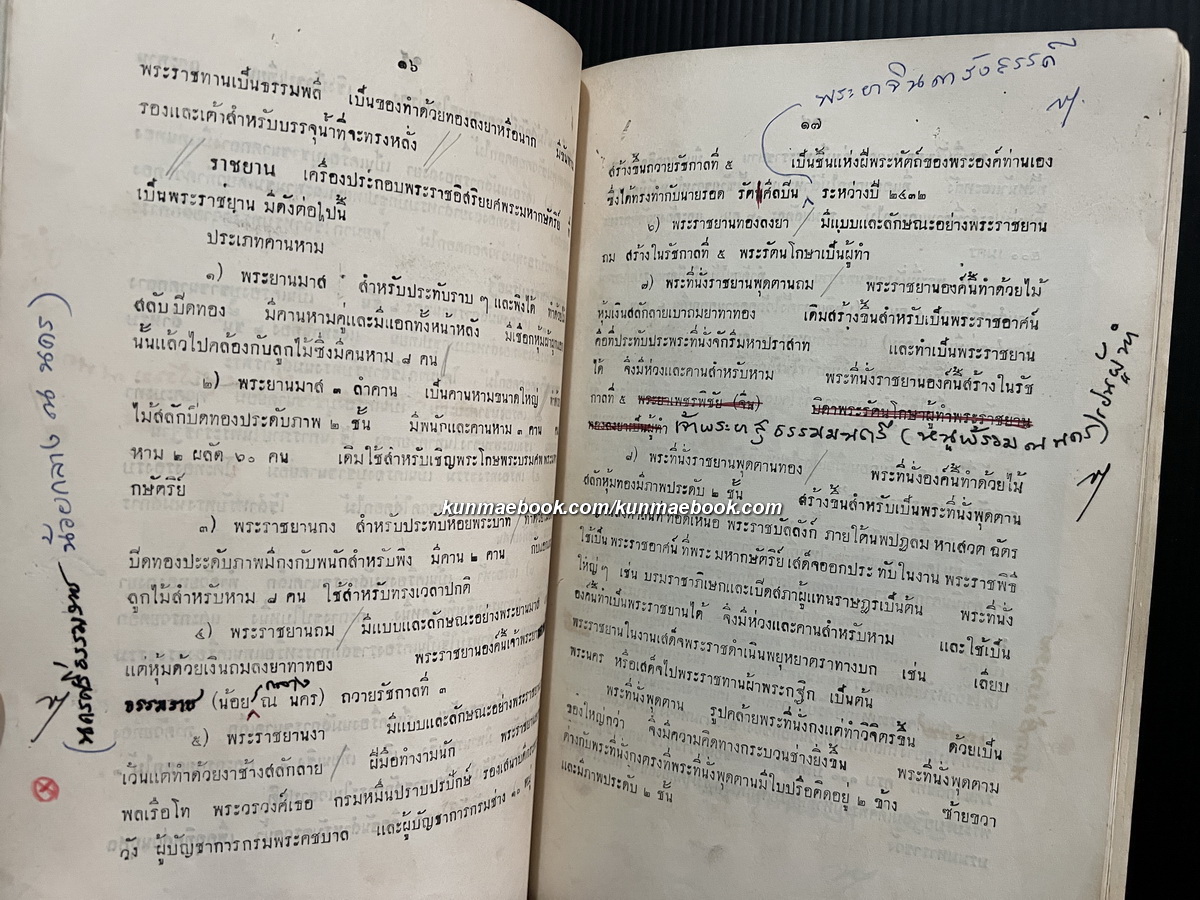 ๑๖
พระราชทานเป็นธรรมพลี เป็นของทำด้วยทองลงยาหรือนาก
รองและเต้าสำหรับบรรจุน้ำที่จะทรงหลั่ง
ราชยาน เครื่องประกอบพระราชอิสริยยศพระมหากษัตริย์
เป็นพระราชยาน มีดังต่อไปนี้
ประเภทคานหาม
๑) พระยานมาส สำหรับประทับราบ ๆ และพิงได้
สลับปิดทอง มีคานหามคู่และมีแอกทั้งหน้าหลัง
นั้นแล้วไปคล้องกับลูกไม้ซึ่งมีคนหาม ๘ คน
๒) พระยานมาส ๓ ลำคาน เป็นคานหามขนาดใหญ่
ไม้สลักปิดทองประดับภาพ ๒ ชั้น มีพนักและคานหาม ๓ คาน
หาม ๒ ผลัด ๖๐ คน เดิมใช้สำหรับเชิญพระโกษพระบรมศพ
กษัตริย์
๓) พระราชยานกง สำหรับประทับห้อยพระบาท
ปิดทองประดับภาพมีกงกับพนักสำหรับพิง มีคาน ๒ คาน
ลูกไม้สำหรับหาม ๘ คน ใช้สำหรับทรงเวลาปกติ
๔) พระราชยานถม มีแบบและลักษณะอย่างพระยานมาส
แต่หุ้มด้วยเงินถมลงยาทาทอง พระราชยานองค์นี้เจ้าพระยา
ธรรมราช (น้อย กลาง ณ นคร) ถวายรัชกาลที่ ๓
๕) พระราชยานงา มีแบบและลักษณะอย่างพระราชยาน
เว้นแต่ทำด้วยงาช้างสลักลาย ฝีมือทำงามนัก
พลเรือโท พระวรวงค์เธอ กรมหมื่นปราบปรปักษ์
วัง ผู้บัญชาการกรมพระคชบาล และผู้บัญชาการกรมช่าง ๑๐ หมู่
(นครศรีธรรมราช น้อยกลาง ณ นคร)
พระยาจินดารังสรรค์
๑๗
สร้างขึ้นถวายรัชกาลที่ ๕ เป็นชิ้นแห่งฝีพระหัตถ์ของพระองค์ท่านเอง
ซึ่งได้ทรงทำกับนายรอด รัตนศิลปีน ระหว่างปี ๒๔๓๒
๖) พระราชยานทองลงยา มีแบบและลักษณะอย่างพระราชยาน
ถม สร้างในรัชกาลที่ ๕ พระรัตนโกษาเป็นผู้ทำ
๗) พระที่นั่งราชยานพุดตานถม พระราชยานองค์นี้ทำด้วยไม้
หุ้มเงินสลักลายเบาถมยาทาทอง เดิมสร้างขึ้นสำหรับเป็นพระราชอาศน์
คือที่ประทับประพระที่นั่งจักกริมหาปราสาท และทำเป็นพระราชยาน
ได้ จึงมีห่วงและคานสำหรับหาม พระที่นั่งราชยานองค์นี้สร้างในรัช
กาลที่ ๕ พระยาเพชรพิชัย (จีน) บิดาพระรัตนโกษาผู้ทำพระราชยาน
ทองลงยาเป็นผู้ทำ เจ้าพระยาสุธรรมมนตรี (หนูพร้อม ณ นคร) เป็นผู้ทำ
๘) พระที่นั่งราชยานพุดตานทอง พระที่นั่งองค์นี้ทำด้วยไม้
สลักหุ้มทองมีภาพประดับ ๒ ชั้น สร้างขึ้นสำหรับเป็นพระที่นั่งพุดตาน
kunmaebook.com/kunmaebook.com
พระราชบัลลังก์ ภายใต้นพปฎลมหาเสวตฉัตร
ใช้เป็นพระราชอาศน์ที่พระมหากษัตริย์เสด็จออกประทับในงานพระราชพิธี
ใหญ่ ๆ เช่น บรมราชาภิเษกและเปิดสภาผู้แทนราษฎรเป็นต้น พระที่นั่ง
องค์นี้ทำเป็นพระราชยานได้ จึงมีห่วงและคานสำหรับหาม และใช้เป็น
พระราชยานในงานเสด็จพระราชดำเนินพยุหยาตราทางบก เช่น เลียบ
พระนคร หรือเสด็จไปพระราชทานผ้าพระกฐิก เป็นต้น
พระที่นั่งพุดตาน รูปคล้ายพระที่นั่งกงแต่ทำวิจิตรขึ้น ด้วยเป็น
ของใหญ่กว่า จึงมีความคิดทางกระบวนช่างยิ่งขึ้น พระที่นั่งพุดตาม
ต่างกับพระที่นั่งกงตรงที่พระที่นั่งพุดตานมีใบปรือคิดอยู่ ๒ ข้าง ซ้ายขวา
และมีภาพประดับ ๒ ชั้น